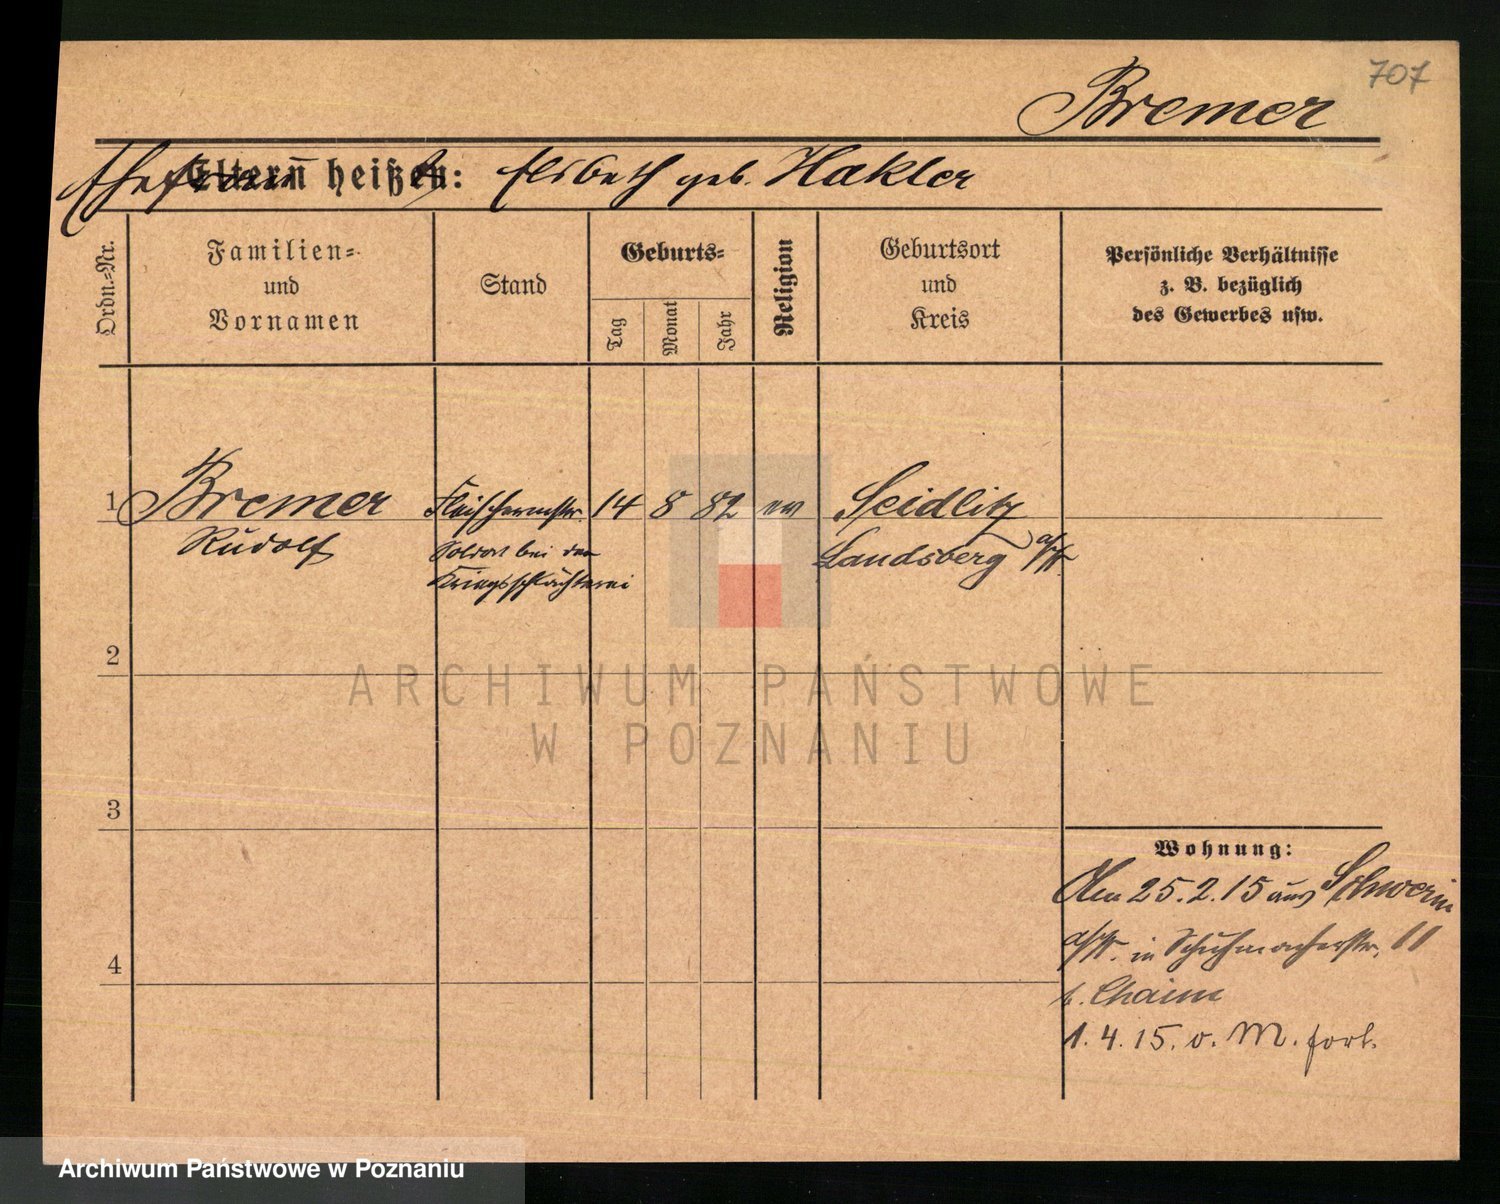 707
Bremer
Ehefrau Eltern heißen: Elsbeth geb. Hakler
Ordn.-Nr.
Familien-
und
Vornamen
Stand
Geburts-
Tag
Monat
Jahr
Religion
Geburtsort
und
Kreis
Persönliche Verhältnisse
z. B. bezüglich
des Gewerbes usw.
1 Bremer Fleischermstr. 14 8 82 ev Seidlitz
Rudolf Soldat bei der Landsberg a/W.
Kriegsschlächterei
2
ARCHIWUM PAŃSTWOWE
W POZNANIU
3
Wohnung:
Am 25.2.15 aus Schwerin
a/W. in Schuhmacherstr. 11
b. Chaim
4
1.4.15. o. M. fort.
Archiwum Państwowe w Poznaniu